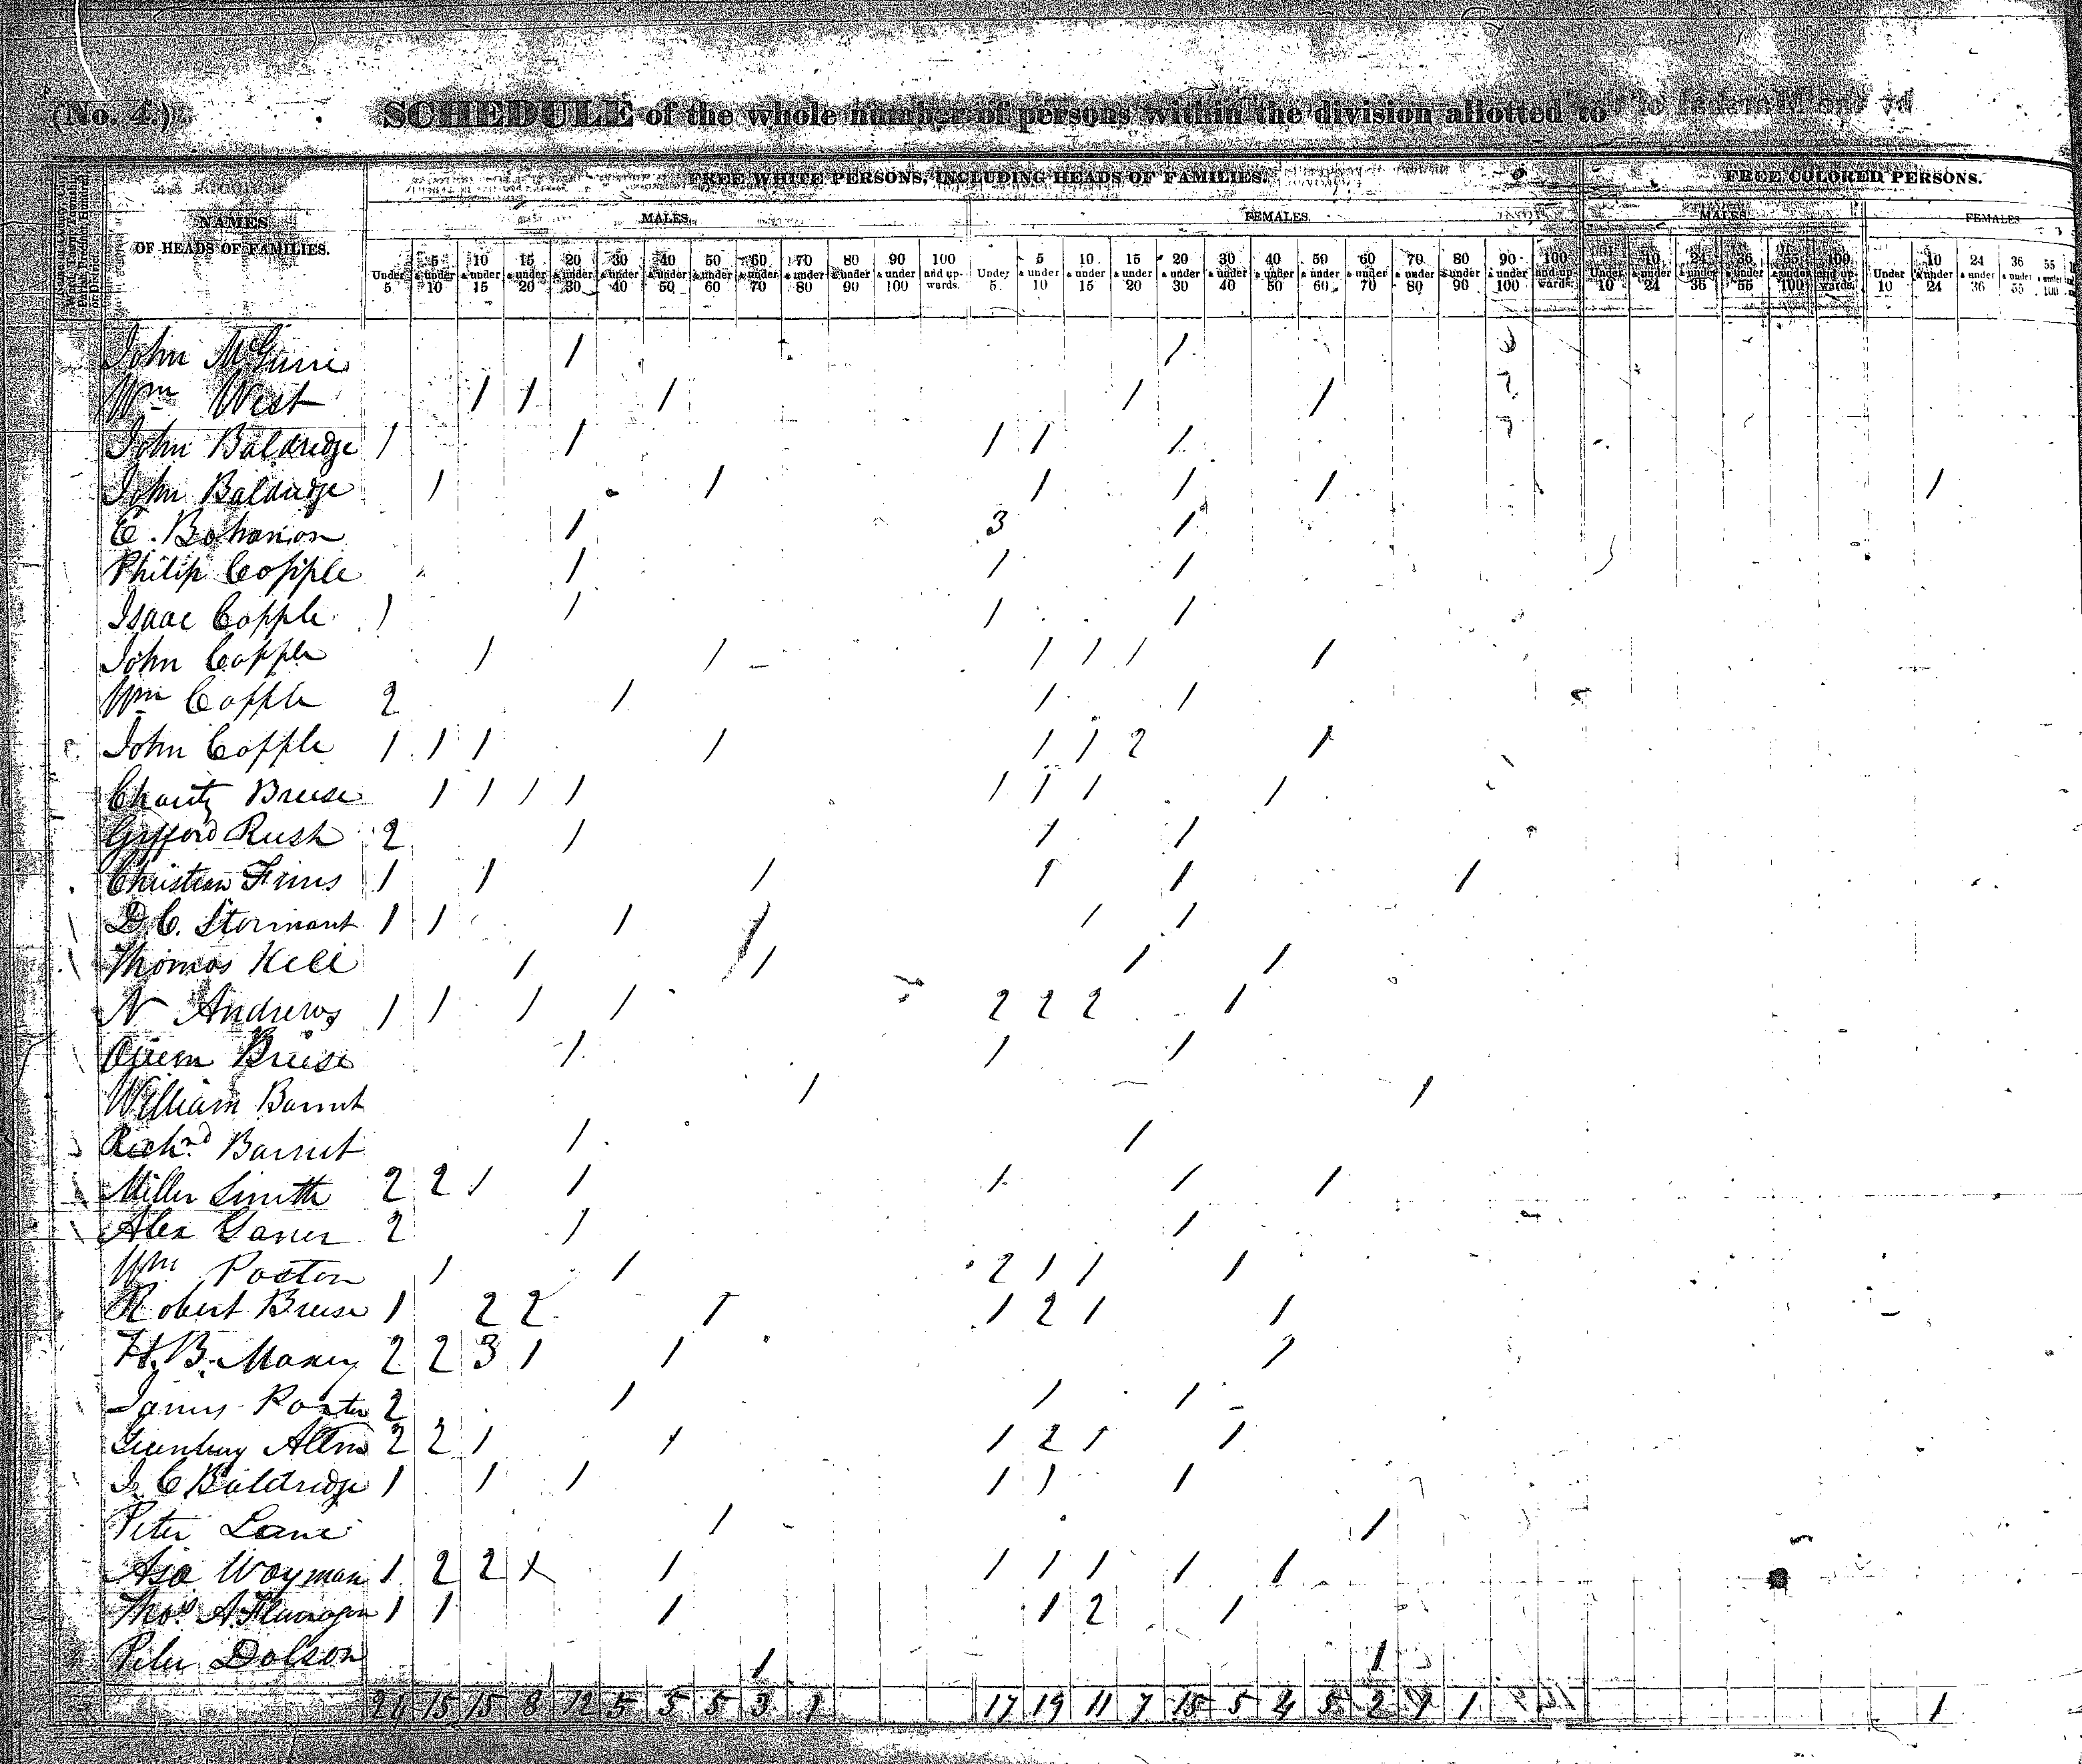 (No. 4.) SCHEDULE of the whole number of persons within the division allotted to
FREE WHITE PERSONS, INCLUDING HEADS OF FAMILIES. FREE COLORED PERSONS.
NAMES MALES. FEMALES. MALES. FEMALES
OF HEADS OF FAMILIES.
Under 5 5 & under 10 10 & under 15 15 & under 20 20 & under 30 30 & under 40 40 & under 50 50 & under 60 60 & under 70 70 & under 80 80 & under 90 90 & under 100 100 and upwards. Under 5. 5 & under 10 10 & under 15 15 & under 20 20 & under 30 30 & under 40 40 & under 50 50 & under 60 60 & under 70 70 & under 80 80 & under 90 90 & under 100 100 and upwards. Under 10 10 & under 24 24 & under 36 36 & under 55 55 & under 100 100 and upwards. Under 10 10 & under 24 24 & under 36 36 & under 55 55 & under 100
John 1 1
Wm West 1 1 1 1 1
John Baldredge 1 1 1 1 1
John Baldredge 1 1 1 1 1 1
E. Bohanion 1 3 1
Philip Copple 1 1 1
Isaac Copple 1 1 1 1
John Copple 1 1 1 1 1 1
Wm Copple 2 1 1 1
John Copple 1 1 1 1 1 1 2 1
Charity Breese 1 1 1 1 1 1 1 1
Gifford Rush 2 1 1 1
Christian Frins 1 1 1 1 1 1
D. C. Stormant 1 1 1 1 1 1
Thomas Kell 1 1 1 1
N Andrews 1 1 1 1 2 2 2 1
Breese 1 1 1
William Barnet 1 1
Richrd Barnet 1 1
Miller Smith 2 2 1 1 1 1 1
Alex 2 1 1
Wm Poston 1 1 2 1 1 1
Robert Breese 1 2 2 1 1 2 1 1
H. B. Maxey 2 2 3 1 1 1
James 2 1 1 1
Greenbury Allmo 2 2 1 1 1 2 1 1
J. C Baldridge 1 1 1 1 1 1
Peter Lane 1 1
Asa Wayman 1 2 2 1 1 1 1 1 1 1
Thos A Flanagan 1 1 1 1 2 1
Peter Dolson 1 1
26 15 15 8 12 5 5 5 3 1 17 19 11 7 18 5 4 5 2 1 1 1